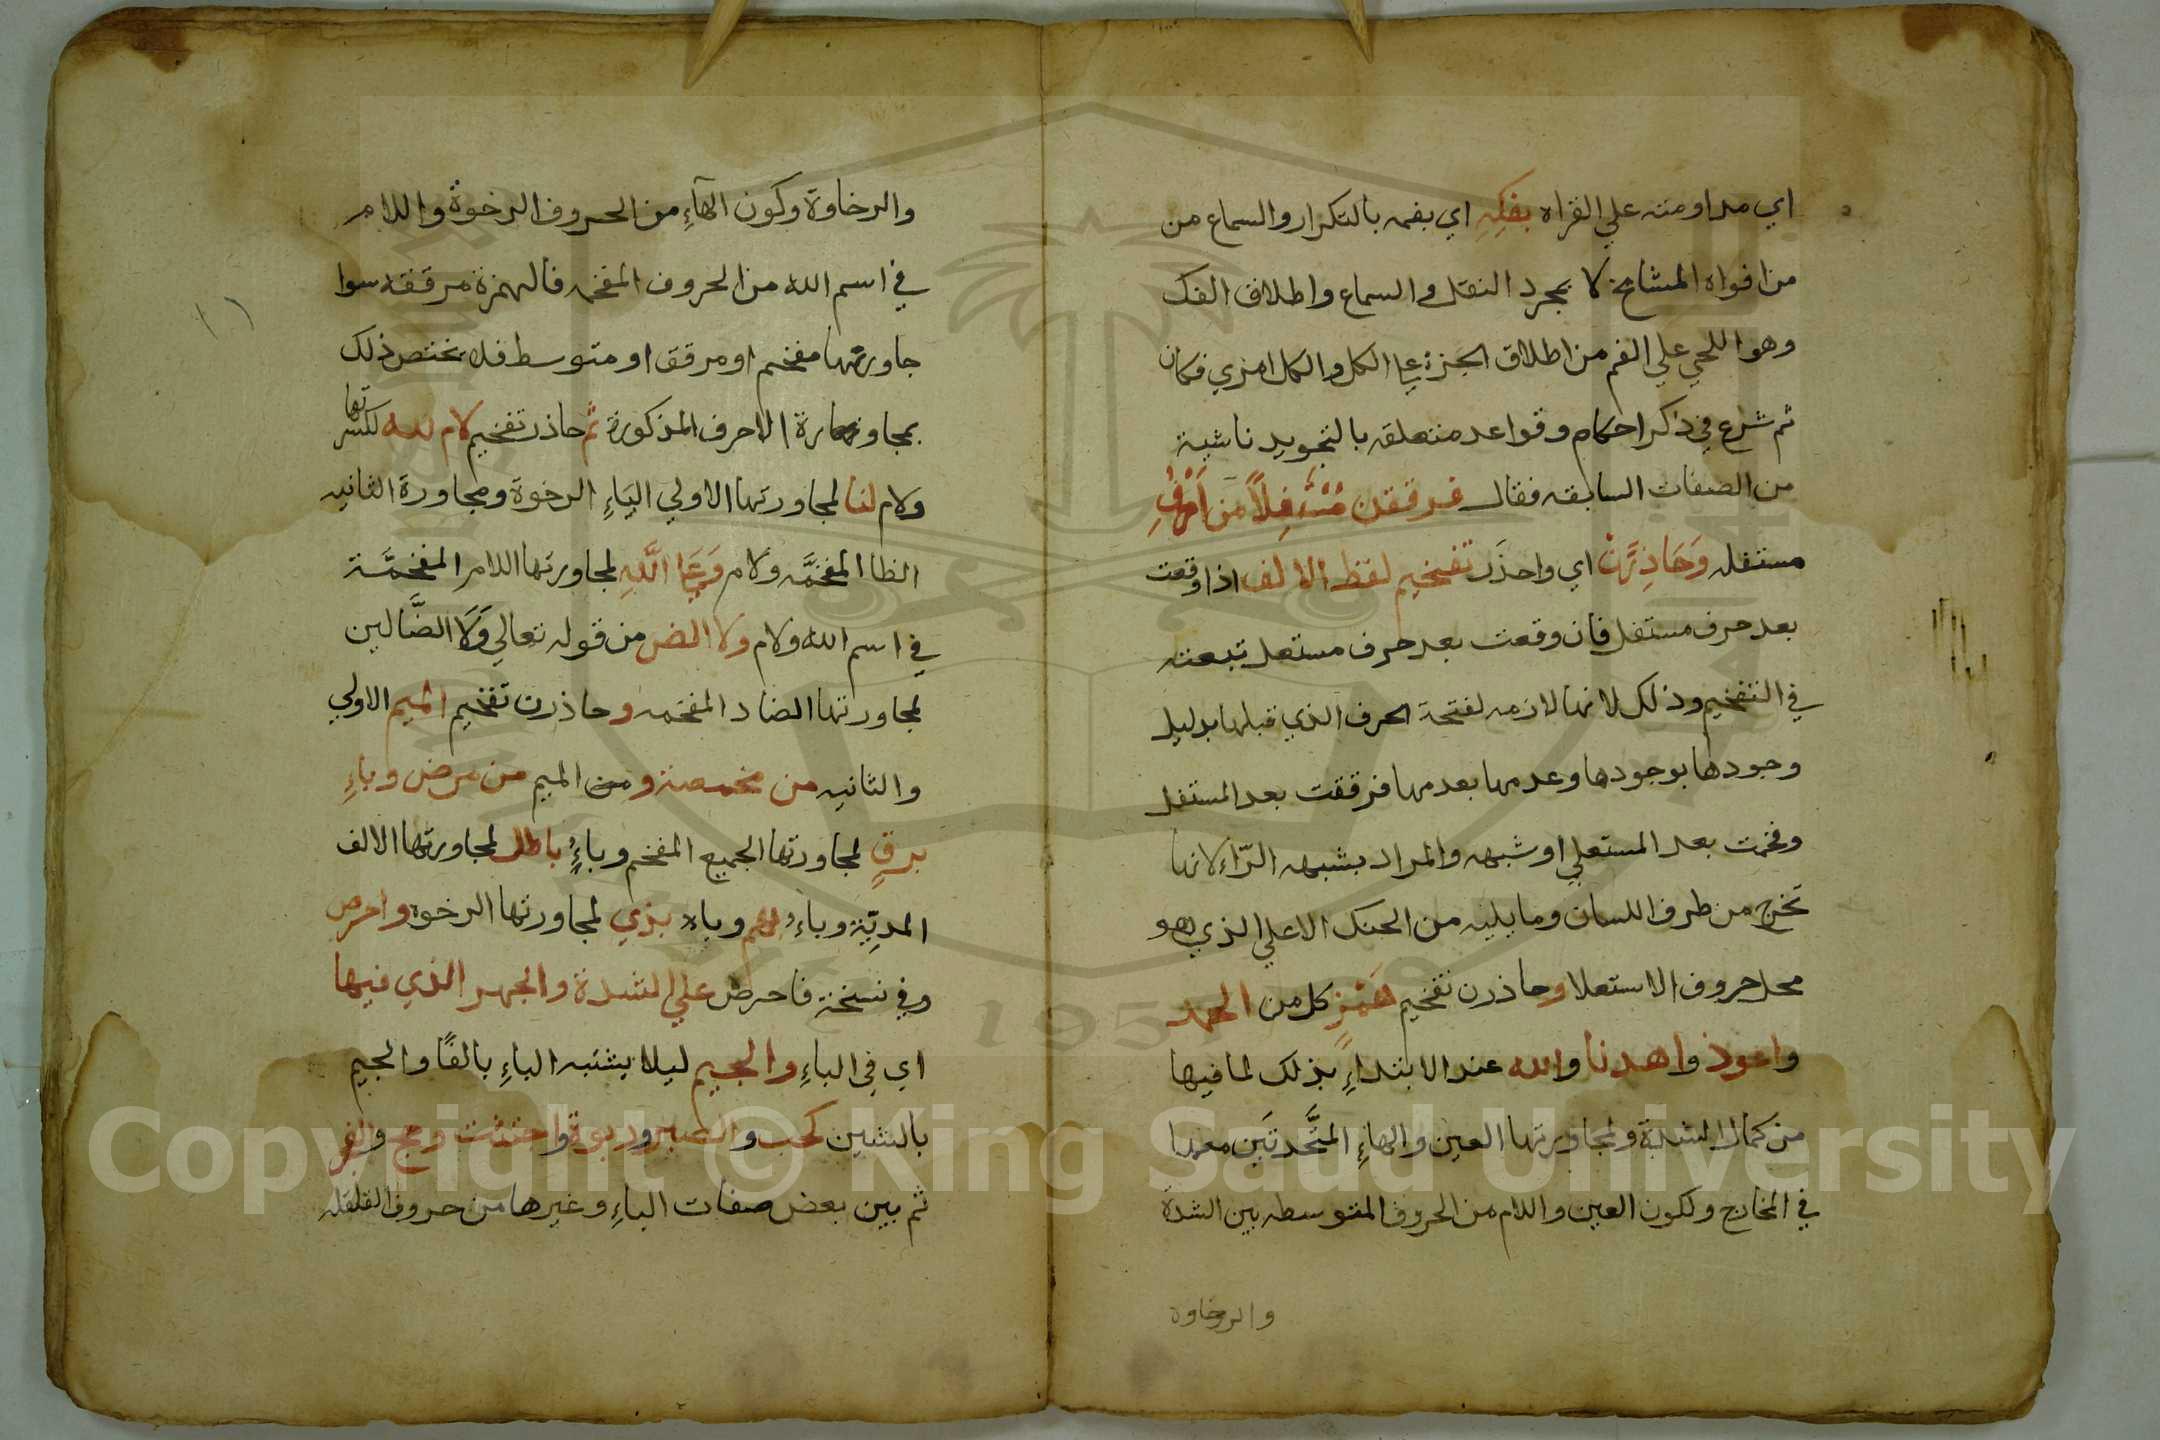 اي مداومته علي القراه بفكه اي بفمه بالتكرار والسماع من
من افواه المشايخ لا بمجرد النقل والسماع واطلاق الفك
وهو اللحي علي الفم من اطلاق الجزء علي الكل والكل امري فكان
ثم شرع في ذكر احكام وقواعد متعلقه بالتجويد ناشية
من الصفات السابقه فقال فرققن مُسْتَفِلاً مِن اَحْرُفِ
مستفله وَحَاذِرَنْ اي واحذر تفخيم لفظ الالف اذا وقعت
بعد حرف مستفل فان وقعت بعد حرف مستعل تبعته
في التفخيم وذلك لانها لازمه لفتحة الحرف الذي قبلها بدليل
وجودها بوجودها وعدمها بعدمها فرققت بعد المستفل
وفخمت بعد المستعلي او شبهه والمراد بشبهه الرّاء لانها
تخرج من طرف اللسان وما يليه من الحنك الاعلي الذي هو
محل حروف الاستعلا وحاذرن تفخيم هَمْزِ كل من الحمد
واعوذ واهدنا والله عند الابتداءِ بذلك لما فيها
من كمال الشدة ولمجاورتها العين والهاءِ المتَّحدتَين معها
في المخارج ولكون العين واللام من الحروف المتوسطه بين الشدة
والرخاوه
والرخاوة وكون الهاءِ من الحروف الرخوة واللام
في اسم الله من الحروف المفخمه فالهمزة مرققه سوا
جاورتها مفخم او مرقق او متوسط فلا يختص ذلك
بمجاورة الاحرف المذكورة ثم حاذرن تفخيم لام لله لكسرتها
ولام لنا لمجاورتها الاولي الياءِ الرخوة ومجاورة الثانيه
الطا المفخَّمه ولام وَعَلي اللَّهِ لمجاورتها اللام المفخمَّة
في اسم الله ولام ولا الض من قوله تعالي وَلَا الضَّالين
لمجاورتها الضاد المفخمه وحاذرن تفخيم الميم الاولي
والثانيه من مخمصة ومن الميم من مرض وباءِ
برقٍ لمجاورتها الجميع المفخم وباءِ باطل لمجاورتها الالف
المديّة وباءِ بهم وباء بذي لمجاورتها الرخوة واحرص
وفي نسخة فاحرص علي الشدة والجهر الذي فيها
اي في الباءِ والجيم ليلا يشتبه الباءِ بالفا والجيم
بالشين كحب والصبر وربوة واجتثت وحج والفجر
ثم بين بعض صفات الباءِ وغيرها من حروف القلقله
١١
Copyright © King Saud University
1957